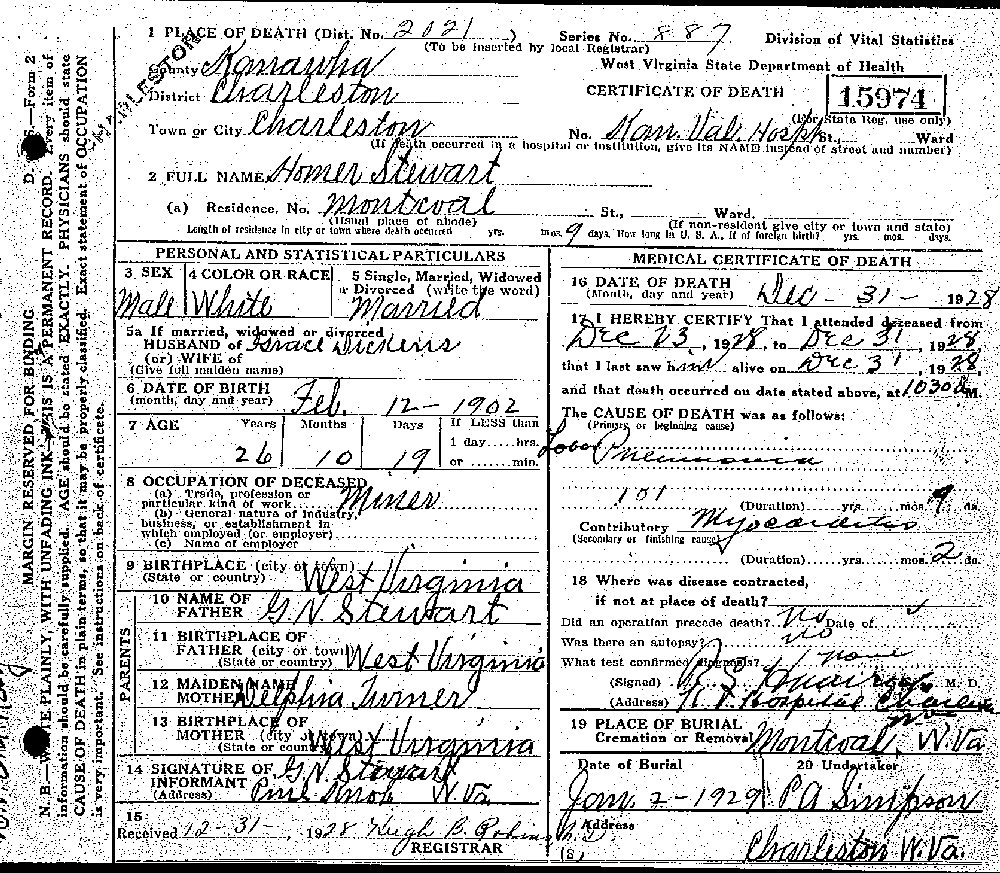 1 PLACE OF DEATH (Dist. No. 2021 ) Series No. 887 Division of Vital Statistics
(To be inserted by local Registrar)
County Kanawha West Virginia State Department of Health
District Charleston CERTIFICATE OF DEATH 15974
(For State Reg. use only)
Town or City Charleston No. Kan. Val. Hospt St., Ward
(If death occurred in a hospital or institution, give its NAME instead of street and number)
2 FULL NAME Homer Stewart
(a) Residence. No. Montcoal St., Ward.
(Usual place of abode) (If non-resident give city or town and state)
Length of residence in city or town where death occurred yrs. mos. 9 days. How long in U. S. A., if of foreign birth? yrs. mos. days.
PERSONAL AND STATISTICAL PARTICULARS
3 SEX 4 COLOR OR RACE 5 Single, Married, Widowed
or Divorced (write the word)
Male White Married
5a If married, widowed or divorced
HUSBAND of Grace Dickens
(or) WIFE of
(Give full maiden name)
6 DATE OF BIRTH
(month, day and year) Feb. 12 - 1902
7 AGE Years Months Days If LESS than
1 day.....hrs.
26 10 19 or ......min.
8 OCCUPATION OF DECEASED
(a) Trade, profession or
particular kind of work Miner
(b) General nature of industry,
business, or establishment in
which employed (or employer)
(c) Name of employer
9 BIRTHPLACE (city or town)
(State or country) West Virginia
PARENTS
10 NAME OF
FATHER G. V. Stewart
11 BIRTHPLACE OF
FATHER (city or town)
(State or country) West Virginia
12 MAIDEN NAME
MOTHER Delphia Turner
13 BIRTHPLACE OF
MOTHER (city or town)
(State or country) West Virginia
14 SIGNATURE OF
INFORMANT G. V. Stewart
(Address) Knob W. Va
15
Received 12-31-, 1928 Hugh B. Robins
REGISTRAR
MEDICAL CERTIFICATE OF DEATH
16 DATE OF DEATH
(Month, day and year) Dec - 31 - 1928
17 I HEREBY CERTIFY That I attended deceased from
Dec 23, 1928, to Dec 31, 1928
that I last saw him alive on Dec 31, 1928
and that death occurred on date stated above, at 1030 M.
The CAUSE OF DEATH was as follows:
(Primary or beginning cause)
Lobar Pneumonia
101
(Duration) yrs. mos. 9 ds.
Contributory Myocarditis
(Secondary or finishing cause)
(Duration) yrs. mos. 2 ds.
18 Where was disease contracted,
if not at place of death?
Did an operation precede death? No Date of
Was there an autopsy? no
What test confirmed diagnosis? none
(Signed) M. D.
(Address) Hospital Charleston
19 PLACE OF BURIAL
Cremation or Removal Montcoal, W. Va
Date of Burial 20 Undertaker
Jan. 2 - 1929 P A Simpson
Address
(s) Charleston W. Va.
MARGIN RESERVED FOR BINDING
N. B.—WRITE PLAINLY, WITH UNFADING INK—THIS IS A PERMANENT RECORD. Every item of
information should be carefully supplied. AGE should be stated EXACTLY. PHYSICIANS should state
CAUSE OF DEATH in plain terms, so that it may be properly classified. Exact statement of OCCUPATION
is very important. See instructions on back of certificate.
Form 2